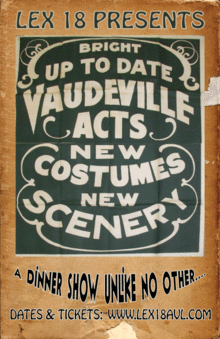 LEX 18 PRESENTS
BRIGHT
UP TO DATE
VAUDEVILLE
ACTS
NEW
COSTUMES
NEW
SCENERY
A DINNER SHOW UNLIKE NO OTHER...
DATES & TICKETS: WWW.LEX18AVL.COM